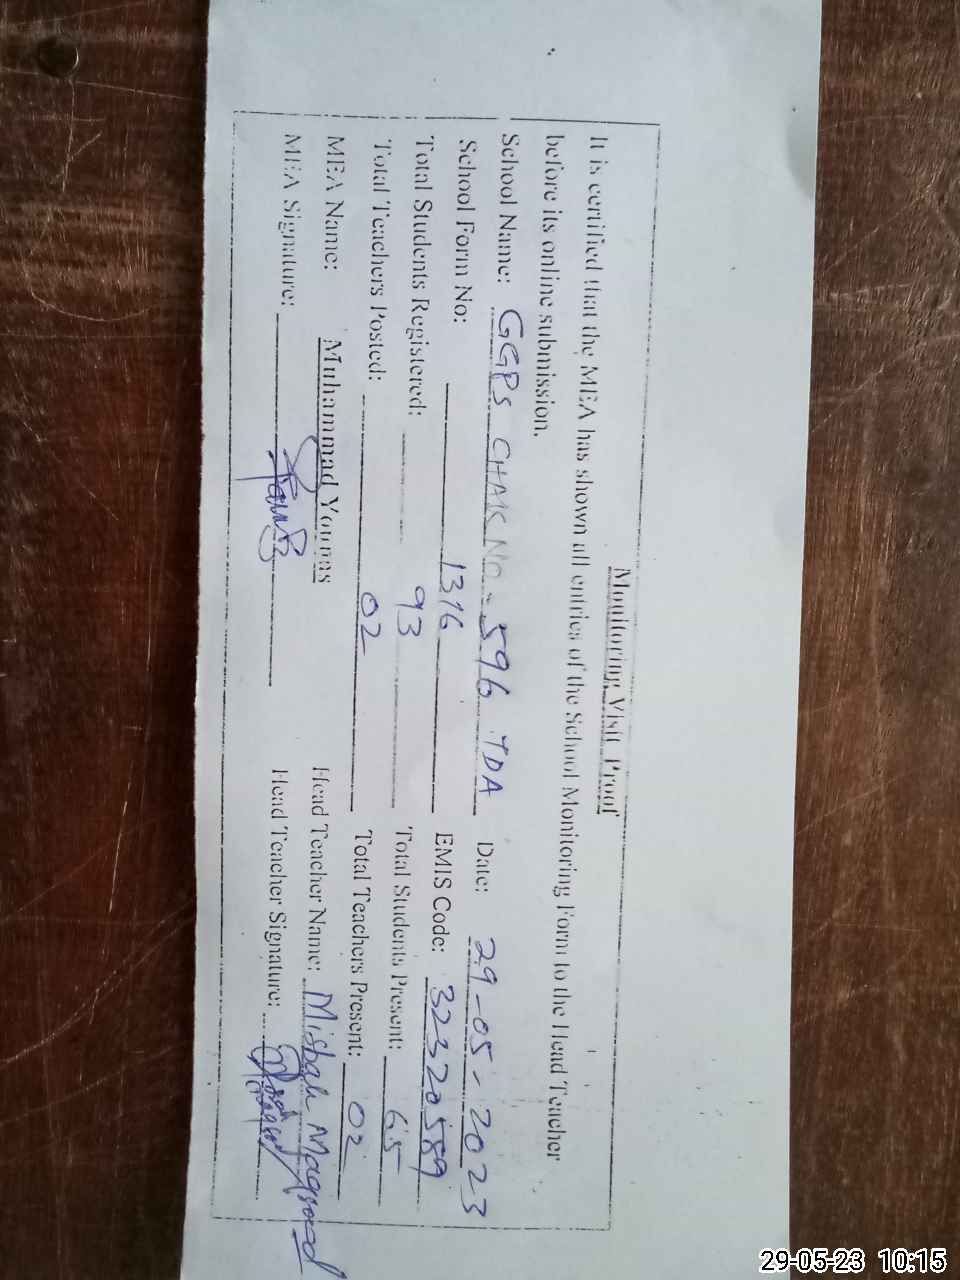 Monitoring Visit Proof
It is certified that the MEA has shown all entries of the School Monitoring Form to the Head Teacher
before its online submission.
School Name: GGPS CHAK No. 596 TDA Date: 29-05-2023
School Form No: 1316 EMIS Code: 32320589
Total Students Registered: 93 Total Students Present: 65
Total Teachers Posted: 02 Total Teachers Present: 02
MEA Name: Muhammad Younas Head Teacher Name: Misbah Maqsood
MEA Signature: Head Teacher Signature:
29-05-23 10:15